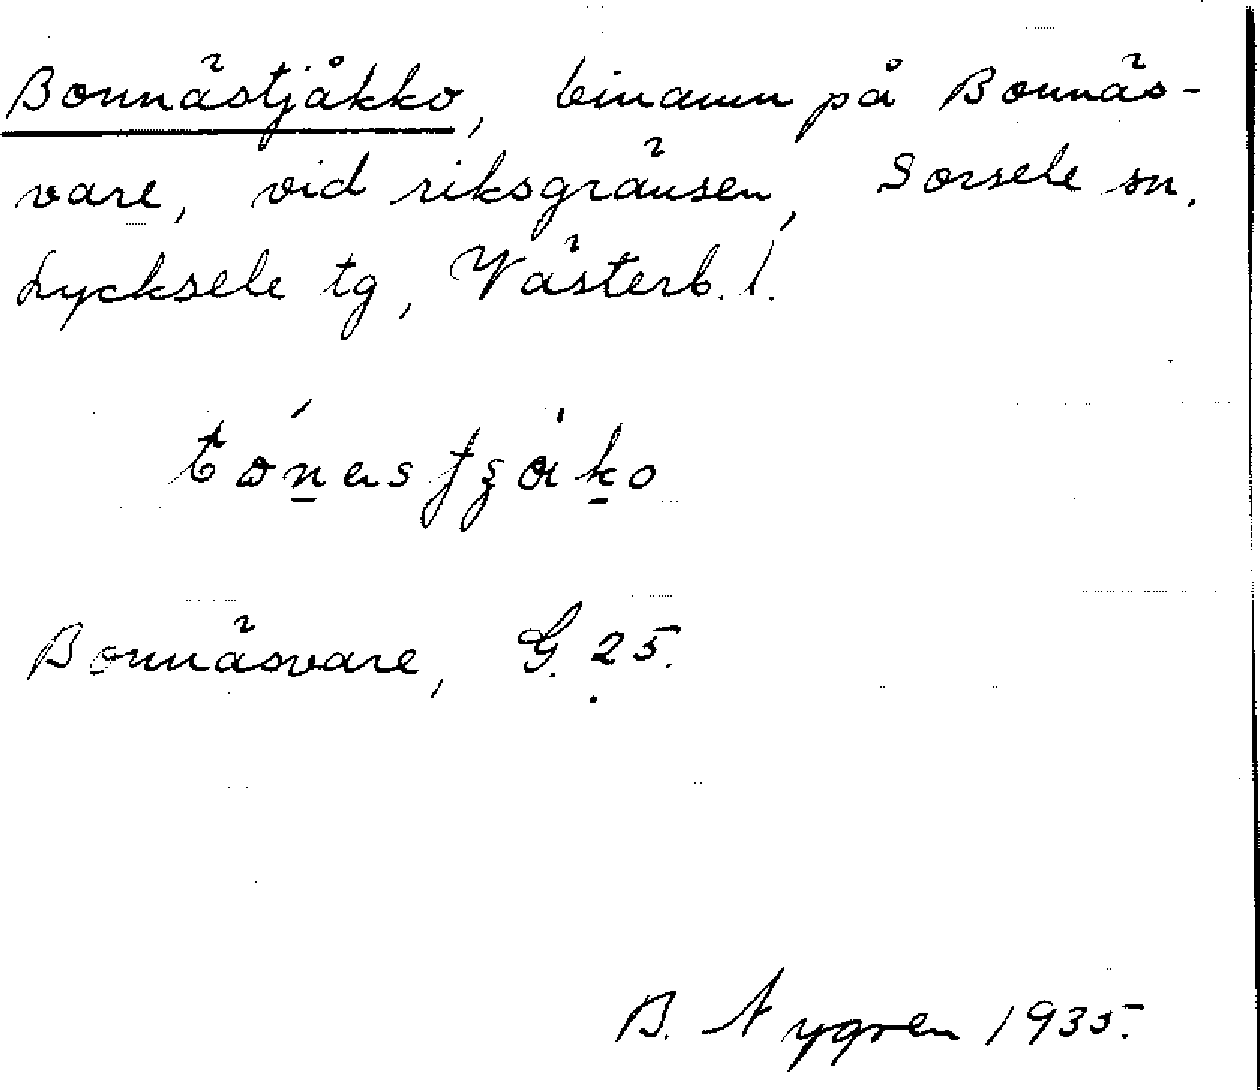 Bonnästjåkko, binamn på Bonnäs-
vare, vid riksgränsen, Sorsele sn.
Lycksele tg, Västerb. l.
Bonnäsvare, G. 25.
B. Nygren 1935.